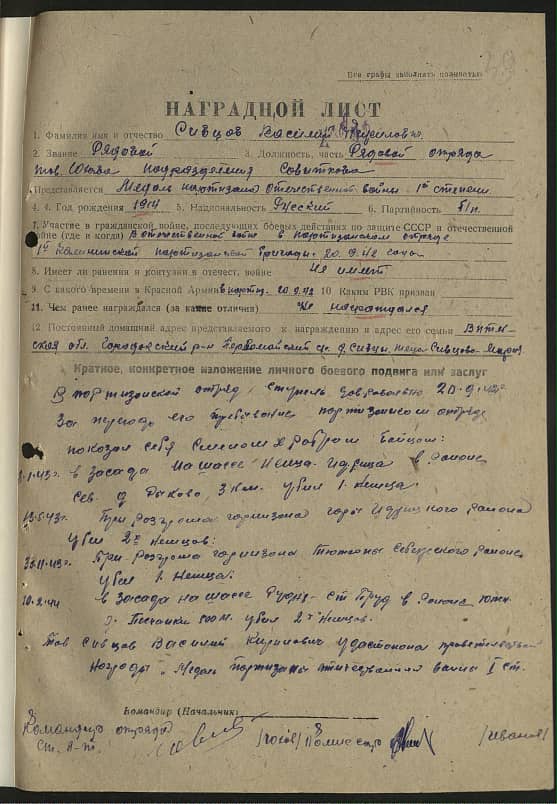 Все графы заполнять полностью
НАГРАДНОЙ ЛИСТ
1. Фамилия имя и отчество Сивцов Василий
2. Звание Рядовой 3. Должность, часть Рядовой отряда
тов. подразделения
Представляется Медаль партизана отечественной войны 1й степени
4. Год рождения 1914 5. Национальность Русский 6. Партийность б/п.
7. Участие в гражданской войне, последующих боевых действиях по защите СССР и отечественной
войне (где и когда) В отечественной войне в партизанском отряде
1й Калининской партизанской бригады. 20.9.42 года
8. Имеет ли ранения и контузии в отечест. войне Не имеет
9. С какого времени в Красной Армии в партиз. 20.9.42 10 Каким РВК призван
11. Чем ранее награждался (за какие отличия) Не награждался
12 Постоянный домашний адрес представляемого к награждению и адрес его семьи Витеб-
ская обл. Городокский р-н Первомайский д. Сивцы
Краткое, конкретное изложение личного боевого подвига или заслуг
В партизанский отряд ступил добровольно 20-9-42г
За период его пребывания партизанском отряде
показал себя смелым храбрым бойцом:
43г. в засада на шоссе Невель-Идрица в районе
сев. д. Рыково, 3 км. убил 1. немца.
43г. При разгроме гарнизона Идрицкого района
убил 2х немцов:
43г. При разгроме гарнизона Себежского района
убил 1 немца:
10.2.44 в засада на шоссе ст. Пруд в районе южн.
500 м. убил 2х немцов.
Тов Сивцов Василий Кирилович удостоен правительствен
награды „Медаль партизаны отечествення войны I ст.
Командир (Начальник)
Командир отряда Комиссар /Иванов/